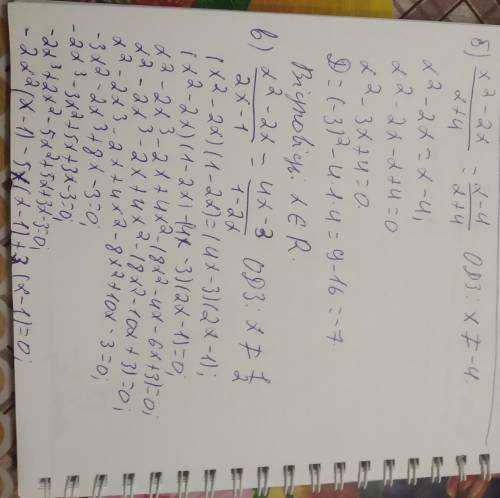 б) x²-2x / x+4 = x-4 / x+4 ОДЗ: x ≠ -4.
x²-2x = x-4;
x²-2x-x+4=0
x²-3x+4=0.
D=(-3)²-4·1·4=9-16=-7.
Відповідь: x∈R.
в) x²-2x / 2x-1 = 4x-3 / 1-2x ОДЗ: x ≠ 1/2
(x²-2x)(1-2x)=(4x-3)(2x-1);
(x²-2x)(1-2x)-(4x-3)(2x-1)=0;
x²-2x³-2x+4x²-(8x²-4x-6x+3)=0;
x²-2x³-2x+4x²-(8x²-10x+3)=0;
x²-2x³-2x+4x²-8x²+10x-3=0;
-3x²-2x³+8x-3=0;
-2x³-3x²+5x+3x-3=0;
-2x³+2x²-5x²+5x+3x-3=0;
-2x²(x-1)-5x(x-1)+3(x-1)=0;